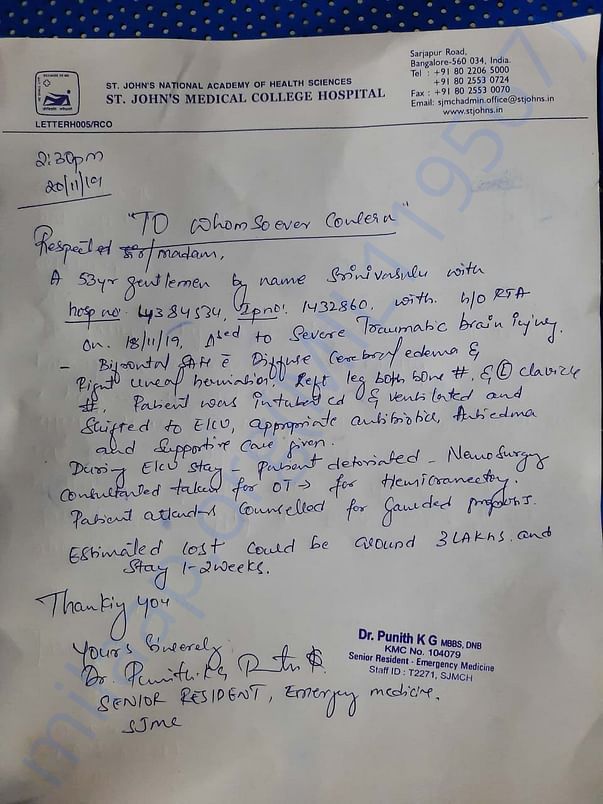 ST. JOHN'S NATIONAL ACADEMY OF HEALTH SCIENCES
ST. JOHN'S MEDICAL COLLEGE HOSPITAL
LETTERH005/RCO
Sarjapur Road,
Bangalore-560 034, India.
Tel : +91 80 2206 5000
+91 80 2553 0724
Fax : +91 80 2553 0070
Email: sjmchadmin.office@stjohns.in
www.stjohns.in
2:30pm
20/11/19
"TO Whomsoever Concern"
Respected Sir/madam,
A 53yr gentlemen by name Srinivasulu with
hosp no. 4384534, Ip no: 1432860. with h/o RTA
on 18/11/19, to Severe Traumatic brain injury.
- Bifrontal SAH c Diffuse Cerebral edema &
Right uncal herniation. Left leg both bone #, & (L) clavicle
#. Patient was intubated & ventilated and
Shifted to EICU, appropriate antibiotics, Antiedma
and Supportive Care given.
During EICU stay - Patient detoriated - NeuroSurgy
Consultanted taken for OT → for Hemicranectory.
Patient attenders Counselled for Gaurded prognosis.
Estimated Cost could be around 3 LAKHS. and
Stay 1-2 weeks.
Thanking you
Yours Sincerely
Dr. Punith.KG
SENIOR RESIDENT, Emergency medicine,
SJMC
Dr. Punith K G MBBS, DNB
KMC No. 104079
Senior Resident - Emergency Medicine
Staff ID : T2271, SJMCH